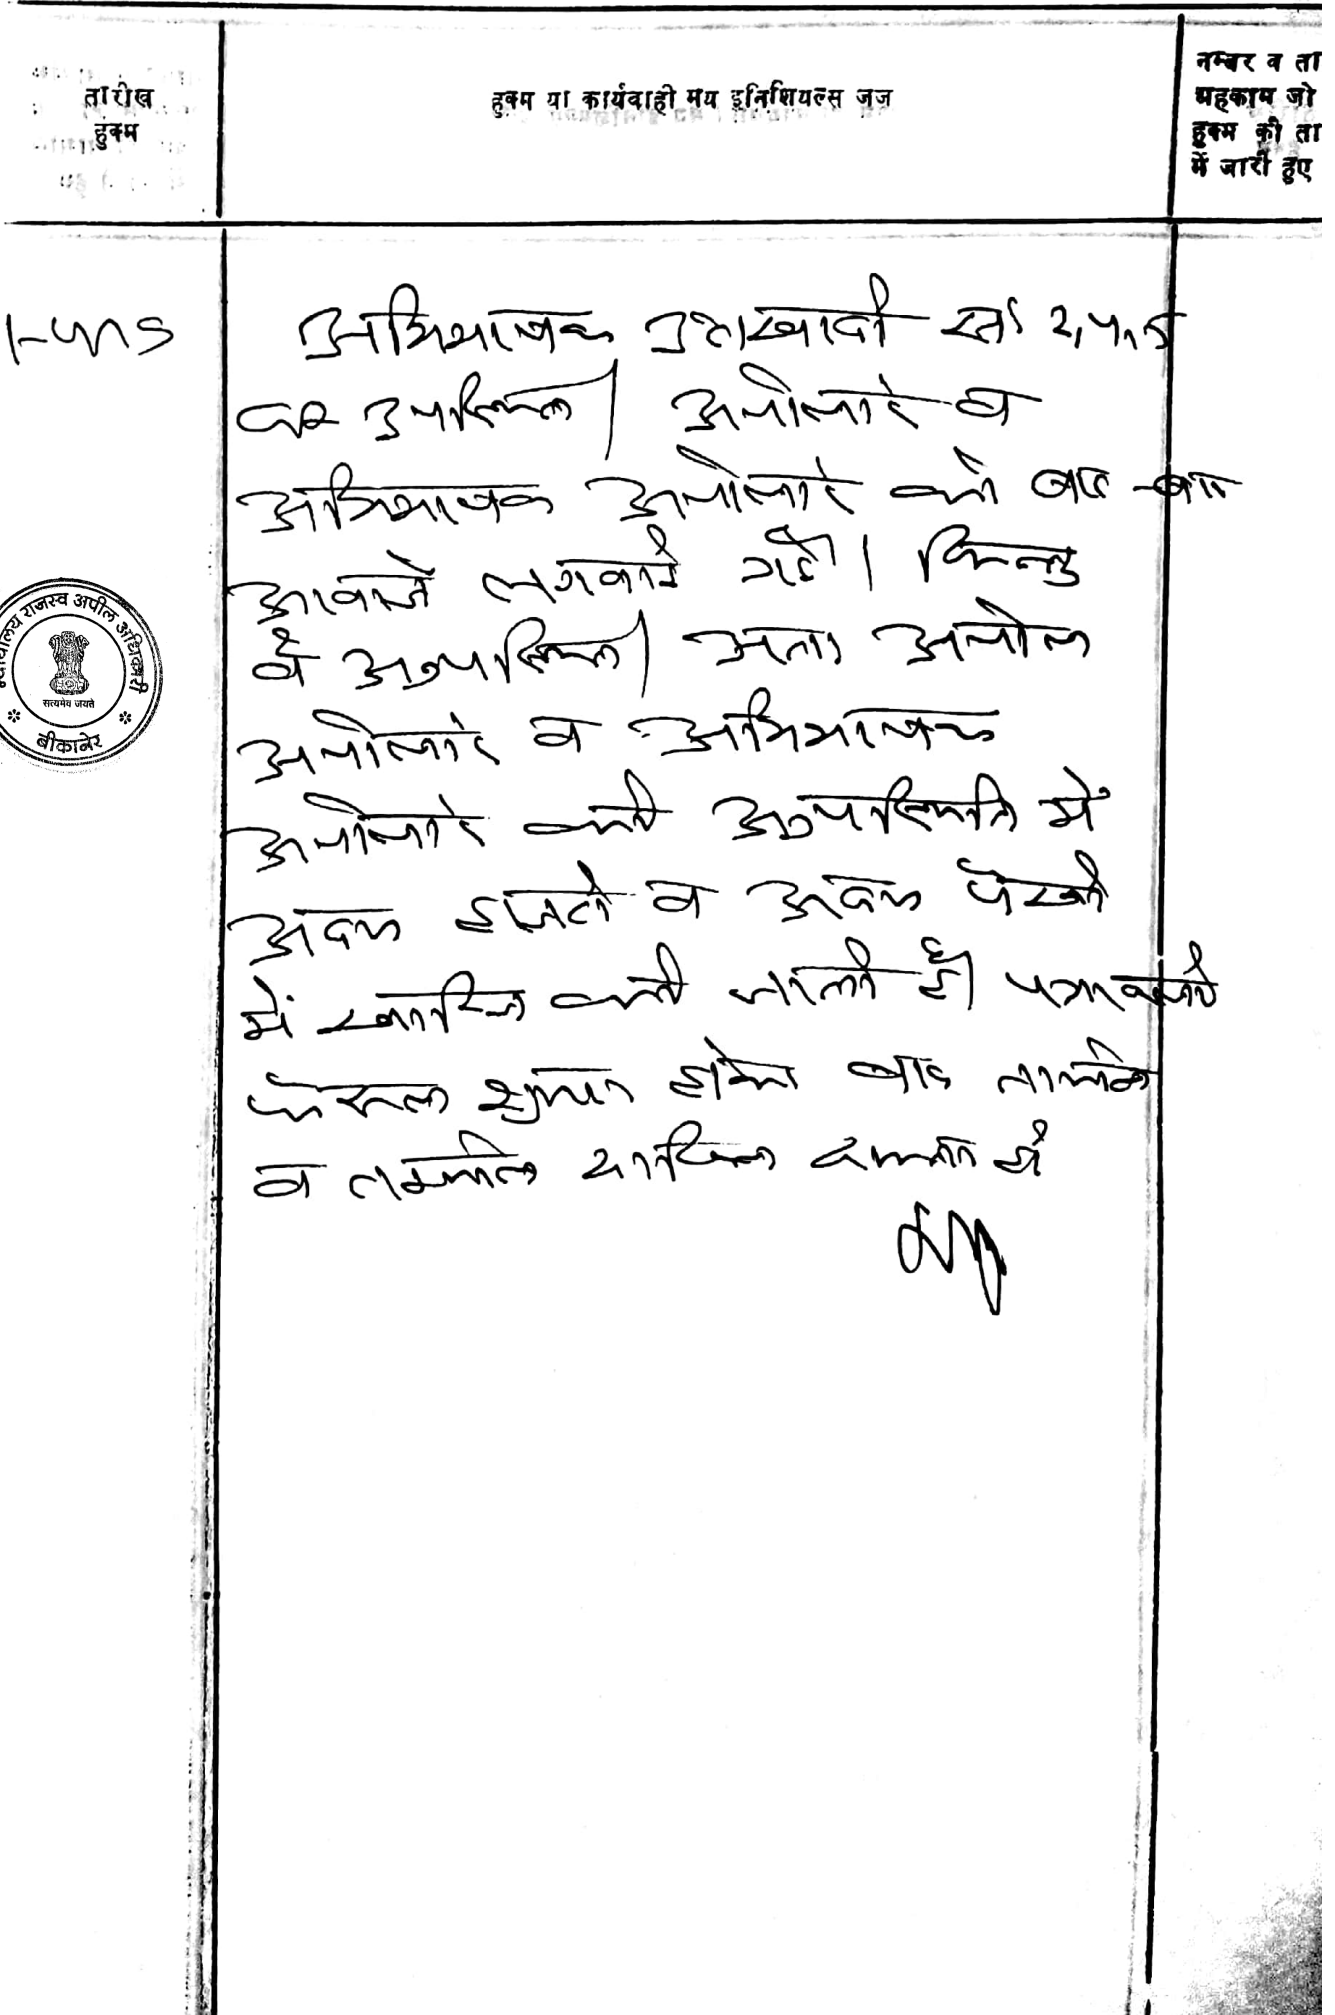 तारीख
हुक्म
हुक्म या कार्यवाही मय इनिशियल्स जज
नम्बर व ता
महकाम जो
हुक्म की ता
में जारी हुए
अभिभाषक उत्तरवादी सं
उपस्थित। अपीलांट व
अभिभाषक अपीलांट को बार-बार
आवाजें लगवाई गई। किन्तु
वे अनुपस्थित। अतः अपील
अपीलांट व अभिभाषक
अपीलांट की अनुपस्थिति में
अदम हाजरी व अदम पैरवी
में खारिज की जाती है। पत्रावली
फैसल शुमार होकर बाद
व तकमील दाखिल दफ्तर हो
न्यायालय राजस्व अपील अधिकारी
सत्यमेव जयते
बीकानेर